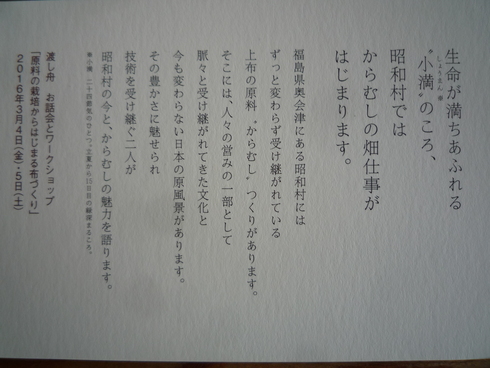 生命が満ちあふれる
“小満”のころ、
しょうまん ※
昭和村では
からむしの畑仕事が
はじまります。
福島県奥会津にある昭和村には
ずっと変わらず受け継がれている
上布の原料“からむし”つくりがあります。
そこには、人々の営みの一部として
脈々と受け継がれてきた文化と
今も変わらない日本の原風景があります。
その豊かさに魅せられ
技術を受け継ぐ二人が
昭和村の今と、からむしの魅力を語ります。
※小満 二十四節気のひとつ。立夏から15日目の
渡し舟 お話会とワークショップ
「原料の栽培からはじまる布づくり」
2016年3月4日(金)・5日(土)